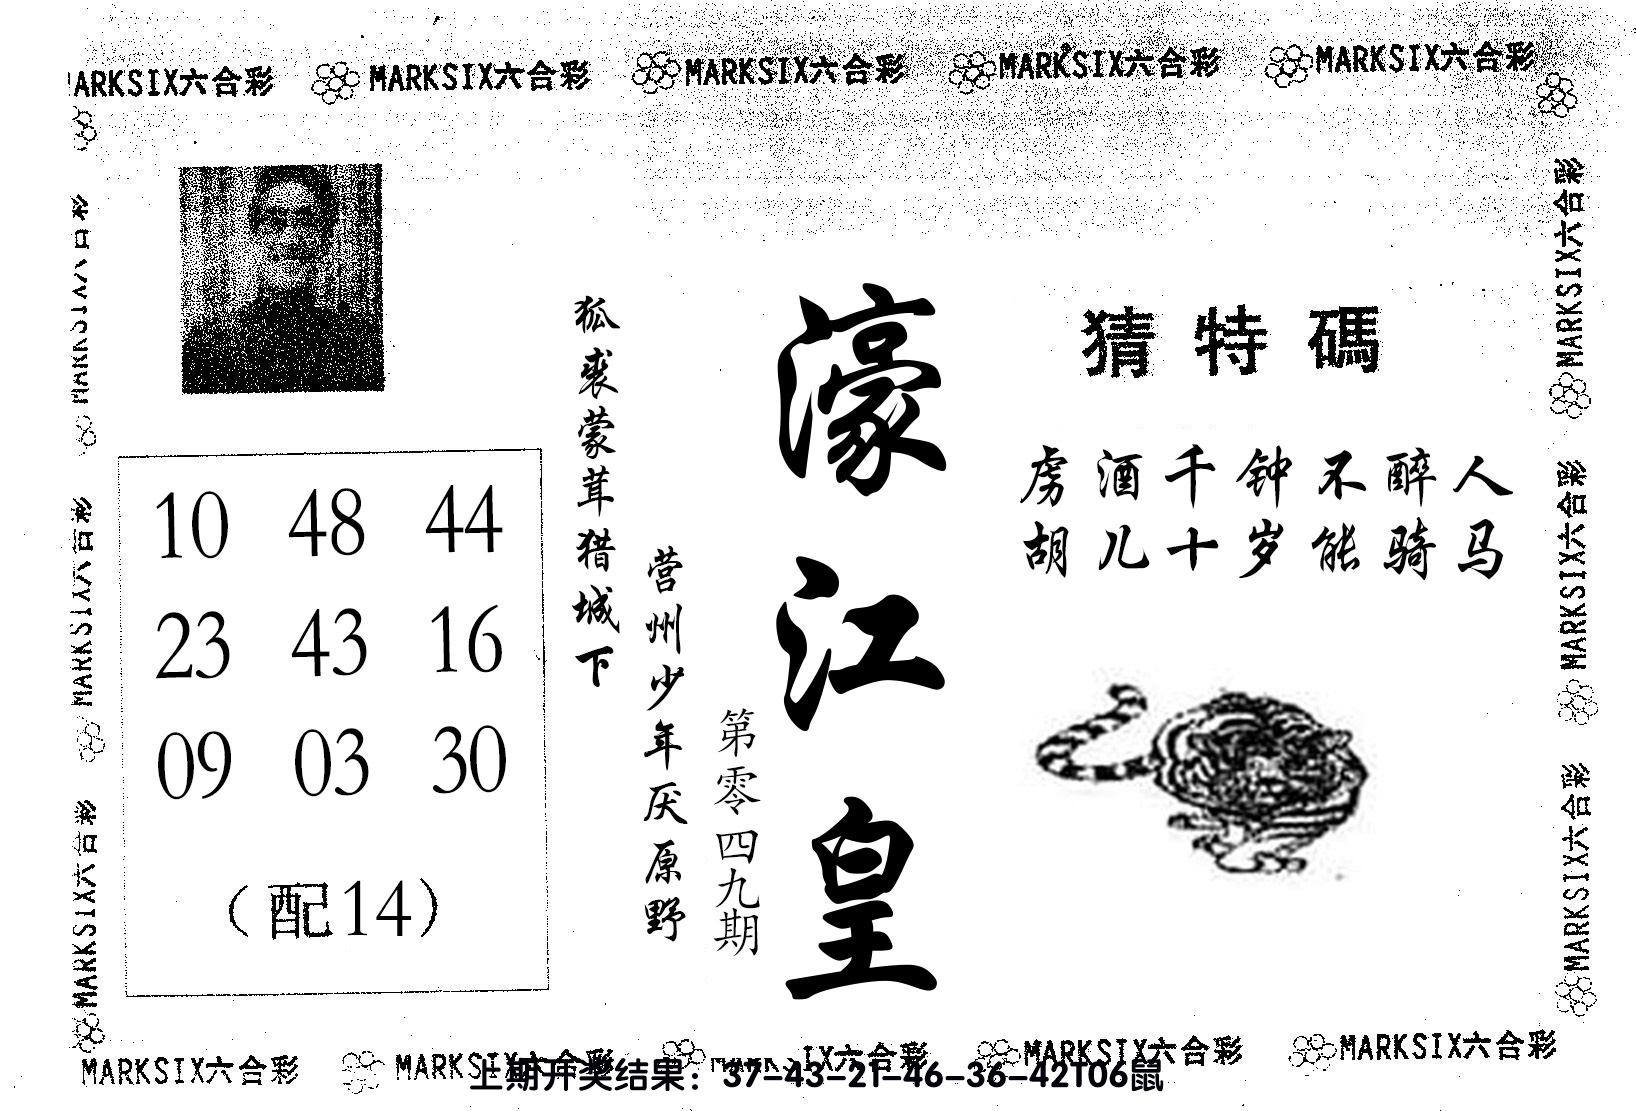 MARKSIX六合彩 MARKSIX六合彩 MARKSIX六合彩 MARKSIX六合彩 MARKSIX六合彩
猜特碼
虏酒千钟不醉人
胡儿十岁能骑马
濠江皇
第零四九期
营州少年厌原野
狐裘蒙茸猎城下
10 48 44
23 43 16
09 03 30
（配14）
MARKSIX六合彩
MARKSIX六合彩
MARKSIX六合彩
MARKSIX六合彩
MARKSIX六合彩
MARKSIX六合彩
MARKSIX六合彩 MARKSIX六合彩 IX六合彩 MARKSIX六合彩 MARKSIX六合彩
上期开奖结果：37-43-21-46-36-42T06鼠